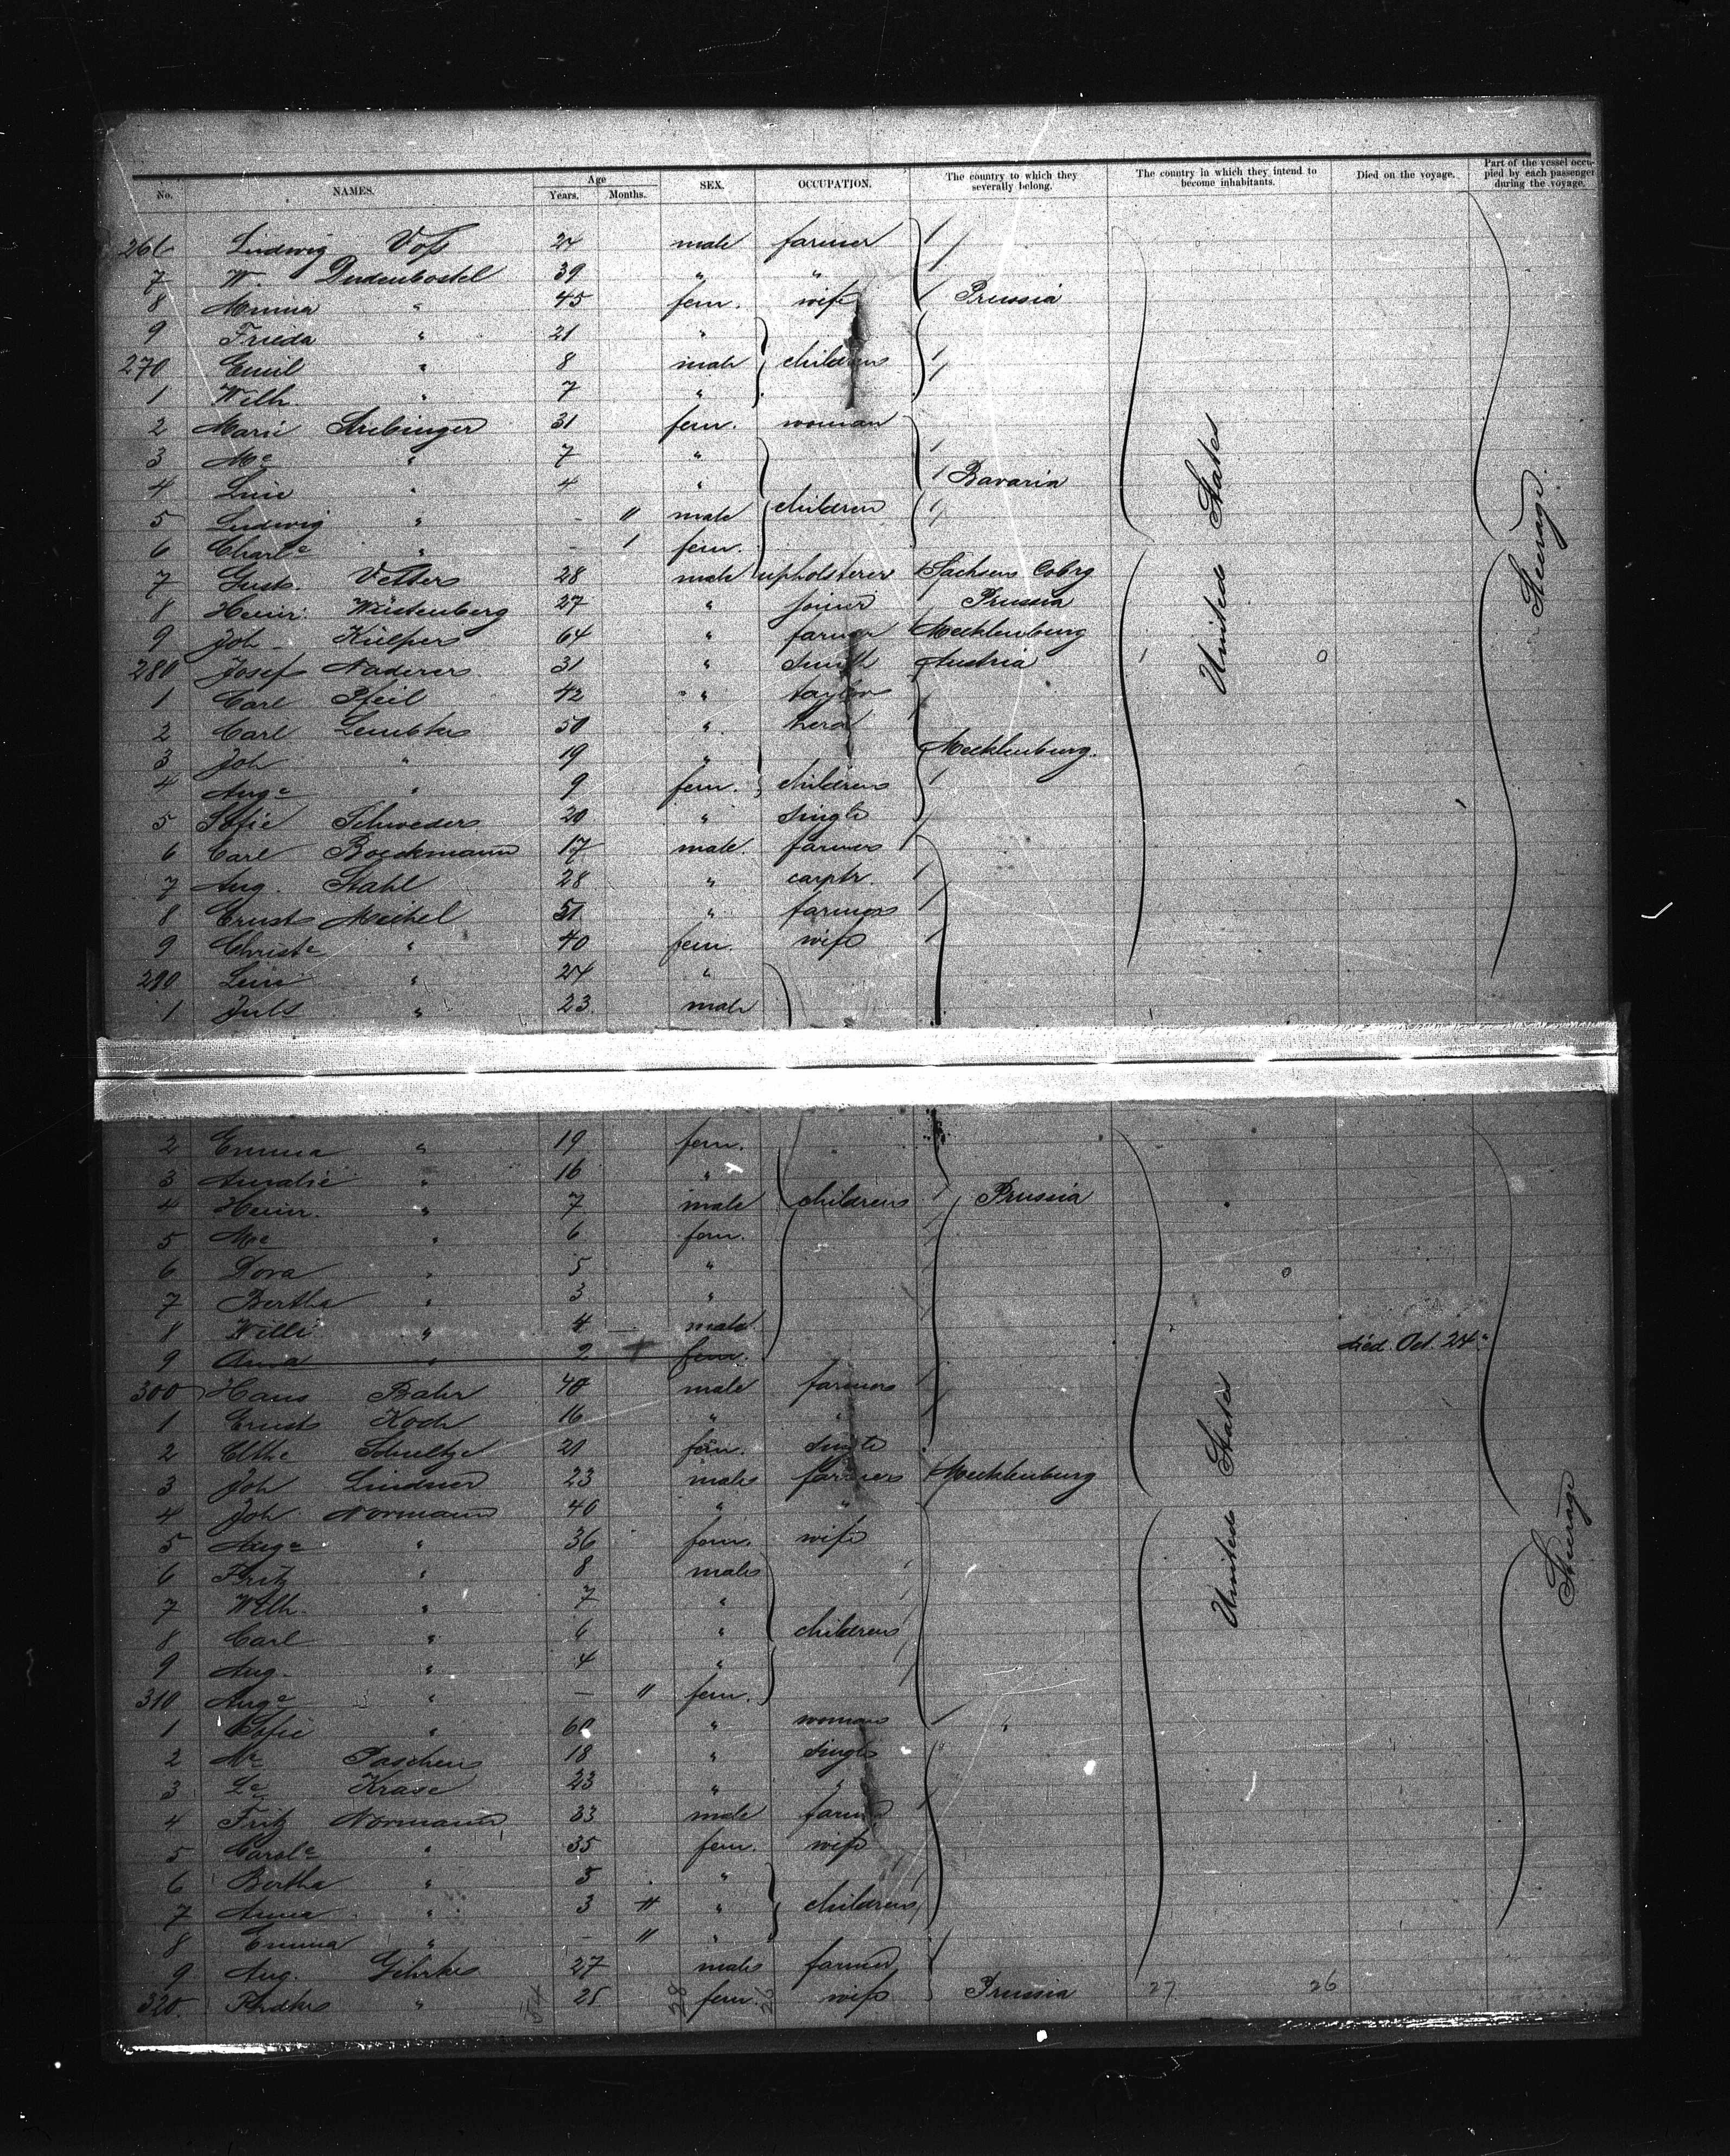 No. NAMES. Age Years. Months. SEX. OCCUPATION. The country to which they severally belong. The country in which they intend to become inhabitants. Died on the voyage. Part of the vessel occupied by each passenger during the voyage.
266 Ludwig Voß 24 male farmer
7 W. Dudenbostel 39 " "
8 Minna " 45 fem. wife Preussia
9 Frieda " 21 "
270 Emil " 8 male childrens
1 Wilh. " 7 "
2 Marie 31 fem. woman
3 Me " 7 "
4 Line " 4 " Bavaria
5 Ludwig " - 11 male children
6 Charle " - 1 fem.
7 Gust. Vetters 28 male upholsterer Sachsen Cobrg
8 Heinr. Wüstenberg 27 " joiner Prussia
9 Joh. Külpers 64 " farmer Mecklenburg
280 Josef Naderer 31 " smith Austria
1 Carl Pfeil 42 " taylor
2 Carl Lembke 50 " herd
3 Joh " 19 " Mecklenburg.
4 Auge " 9 fem. childrens
5 Sofie Schroeder 20 " single
6 Carl Boeckmann 17 male. farmer
7 Aug. Stahl 28 " carptr.
8 Ernst Meikel 51 " farmer
9 Christe " 40 fem. wife
290 Line " 24 "
1 Juls " 23 male
2 Emma " 19 fem.
3 Amalie " 16 "
4 Heinr. " 7 male childrens Prussia
5 Me " 6 fem.
6 Dora " 5 "
7 Bertha " 3 "
8 Willi " 4 male
9 Anna " 2 fem. died Oct. 24"
300 Hans Bahr 40 male farmer
1 Ernst Koch 16 " "
2 Schultze 21 fem. single
3 Joh Lindner 23 male farmer Mecklenburg
4 Joh. Normann 40 " "
5 Auge " 36 fem. wife
6 Fritz " 8 male
7 Wilh. " 7 "
8 Carl " 6 " childrens
9 Aug. " 4 "
310 Auge " - 11 fem.
1 Sofie " 60 " woman "
2 Me Paschen 18 " single
3 Le Krase 23 " "
4 Fritz Normann 33 male farmer
5 Carole " 35 fem. wife
6 Bertha " 5 "
7 Anna " 3 " childrens
8 Emma " - 11 "
9 Aug. Gehrke 27 male farmer
320. " 25 fem. wife Prussia 27 26
United States
Steerage.
United States
Steerage
54
28
26